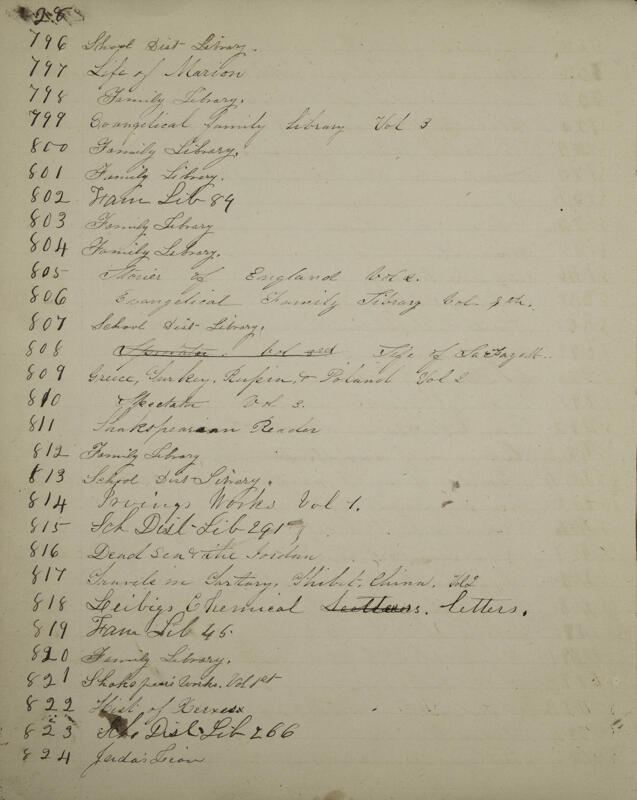 28
796 School Dist Library.
797 Life of Marion
798 Family Library.
799 Evangelical family library Vol 3
800 Family Library.
801 Family Library.
802 Fam Lib 84
803 Family Library
804 Family Library.
805 Stories of England Vol 2.
806 Evangelical Family Library Vol. 9th.
807 School Dist Library.
808 Spectator. Vol 3rd. Life of LaFayett.
809 Greece, Turkey, Russia, & Poland Vol 2
810 Spectator Vol 3.
811 Shakspearean Reader
812 Family Library
813 School Dist Library.
814 Irvings Works Vol 1.
815 Sch Dist Lib 291
816 Dead Sea & the Jordan
817 Travels in Tartary, Thibet, China. Vol 2
818 Leibigs Chemical letters.
819 Fam Lib 45
820 Family Library.
821 Shakspear's Works. Vol 1st
822 Hist. of Xerxes
823 Sch Dist Lib 266
824 Judas Lion